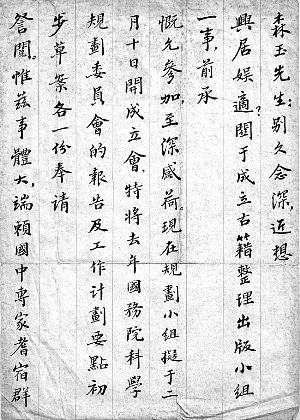 森玉先生：别久念深，近想
興居娱適？關于成立古籍整理出版小组
一事，前承
慨允參加，至深感荷。現在規劃小组擬于二
月十日開成立會，特將去年國務院科學
規劃委員會的報告及工作计劃要點初
步草案各一份奉请
詧閲。惟兹事體大，端賴國中專家耆宿群